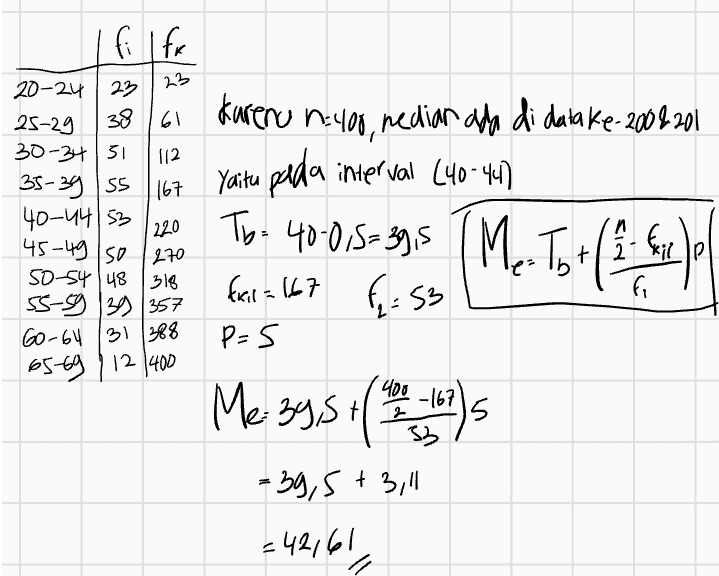 fi fk
20-24 23 23
25-29 38 61
30-34 51 112
35-39 55 167
40-44 53 220
45-49 50 270
50-54 48 318
55-59 39 357
60-64 31 388
65-69 12 400
Karena n=400, median ada di data ke-200 & 201
Yaitu pada interval (40-44)
Tb = 40-0,5 = 39,5
fkil = 167 fi = 53
P = 5
Me = Tb + ((n/2 - fkil)/fi) p
Me = 39,5 + ((400/2 - 167)/53) 5
= 39,5 + 3,11
= 42,61